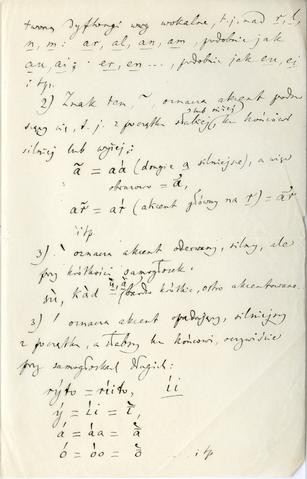 tworzą dyftongi wraz wokalne, t.j. nad r, l,
n, m: ar, al, an, am, podobnie jak
au, ai; er, en..., podobnie jak eu, ei
i tp.
2) Znak ten, ~, oznacza akcent podno
szący się, t. j. z początku słabiej, ku końcowi
lub niżej
silniej lub wyżej:
ã = aá (drugie a silniejsze), a więc
obrazowo =
ar̃ = aŕ (akcent główny na r) =
itp.
3) ` oznacza akcent oderwany, silny, ale
przy krótkości samogłosek.
sù, kàd bardzo krótkie, ostro akcentowane.
3) ´ oznacza akcent spadający, silniejszy
z początku, a słabszy ku końcowi, oczywiście
przy samogłoskach długich:
rýto = ríito, íi
ý = íi =
á = áa =
ó = óo =
itp